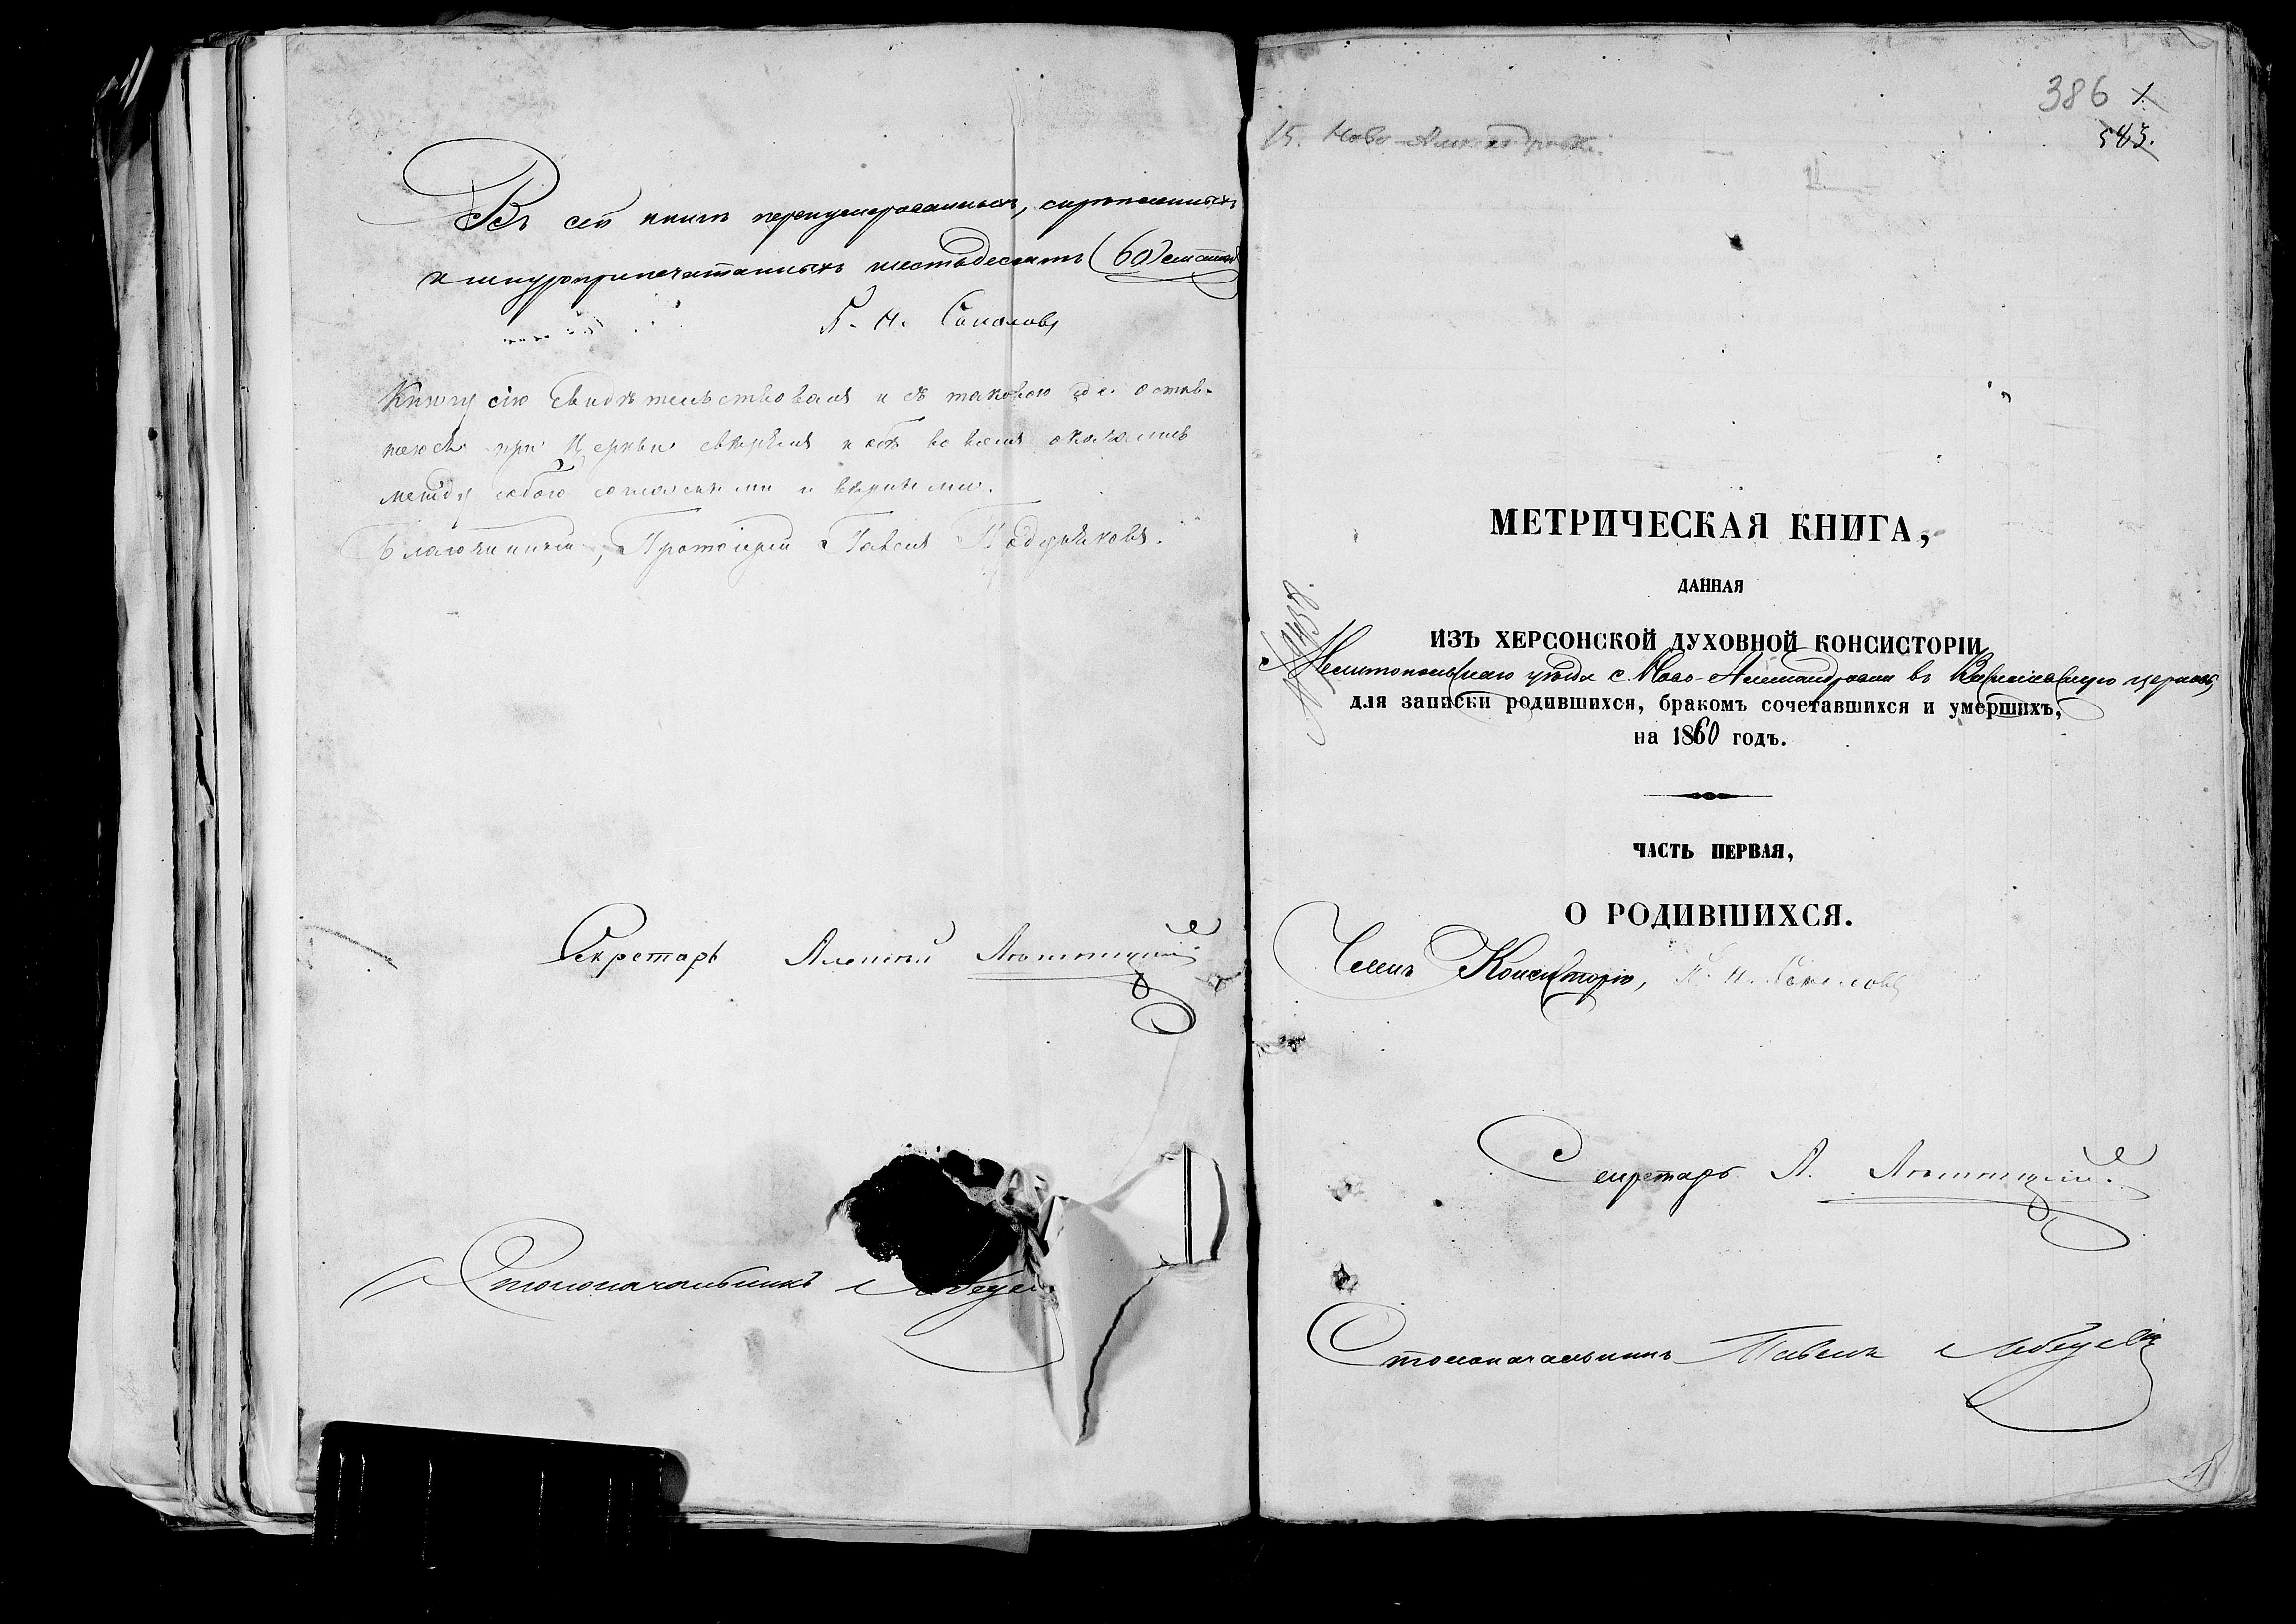 Въ сей книгѣ перенумерованныхъ, скрѣпленныхъ
и шнуроприпечатанныхъ шестьдесятъ (60) листовъ
П. И. Соколовъ
Книгу сію свидѣтельствовалъ и съ таковою же остав-
леюсь при Церкви свѣрялъ и обѣ во всемъ оказались
между собою согласными и вѣрными.
Благочинный, Протоіерей Павелъ
Секретарь Алексій
Столоначальникъ
386 1
583.
15. Ново-Александровка.
МЕТРИЧЕСКАЯ КНИГА,
ДАННАЯ
ИЗЪ ХЕРСОНСКОЙ ДУХОВНОЙ КОНСИСТОРІИ
Мелитопольскаго уѣзда с. Ново-Александровки въ церковь,
для записки родившихся, бракомъ сочетавшихся и умершихъ,
на 1860 годъ.
ЧАСТЬ ПЕРВАЯ,
О РОДИВШИХСЯ.
Членъ Консисторіи, П. И. Соколовъ
Секретарь А.
Столоначальникъ Павелъ Лебедевъ